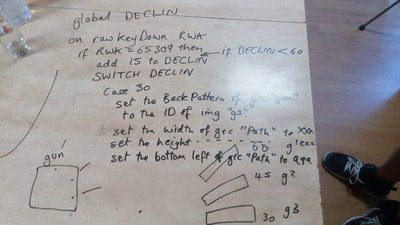 global DECLIN
on rawkeyDown RWK
if RWK = 65309 then ← if DECLIN < 60
add 15 to DECLIN
SWITCH DECLIN
Case 30
set the BackPattern of grc "gun"
to the ID of img "gs"
set the width of grc "Path" to XXX
set the height - - - - - - - - 60 g1
set the bottom left of grc "Path" to
gun
45 g2
30 g3